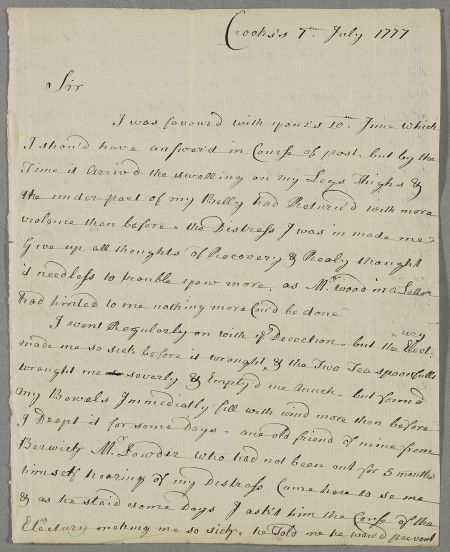 Crooks's 7th July 1777
Sir
I was favour'd with your's 10th June which
I shou'd have answer'd in Course of post. but by the
Time it arriv'd the swelling on my Legs Thighs &
the under part of my Belly had Return'd with more
violence then before & the Distress I was in made me
Give up all thoughts of Recovery & Realy thought
it needless to trouble you more, as Mr. Wood in a Letter
had hinted to me nothing more Cou'd be done
I went Regularly on with ye Decoction - but the Elect:
uary
made me so sick before it wrought, & the Two Tea spoonfulls
wrought me severly & Empty'd me much - but found
my Bowels Immediatly fill with wind more then before
I Drapt it for some Days - ane old friend of mine from
Berwick Mr. Lowdor who had not been out for 5 months
himself hearing of my Distress Came here to se me
& as he staid some Days I ask't him the Cause of the
Electury making me so sick, he Told me he wou'd prevent